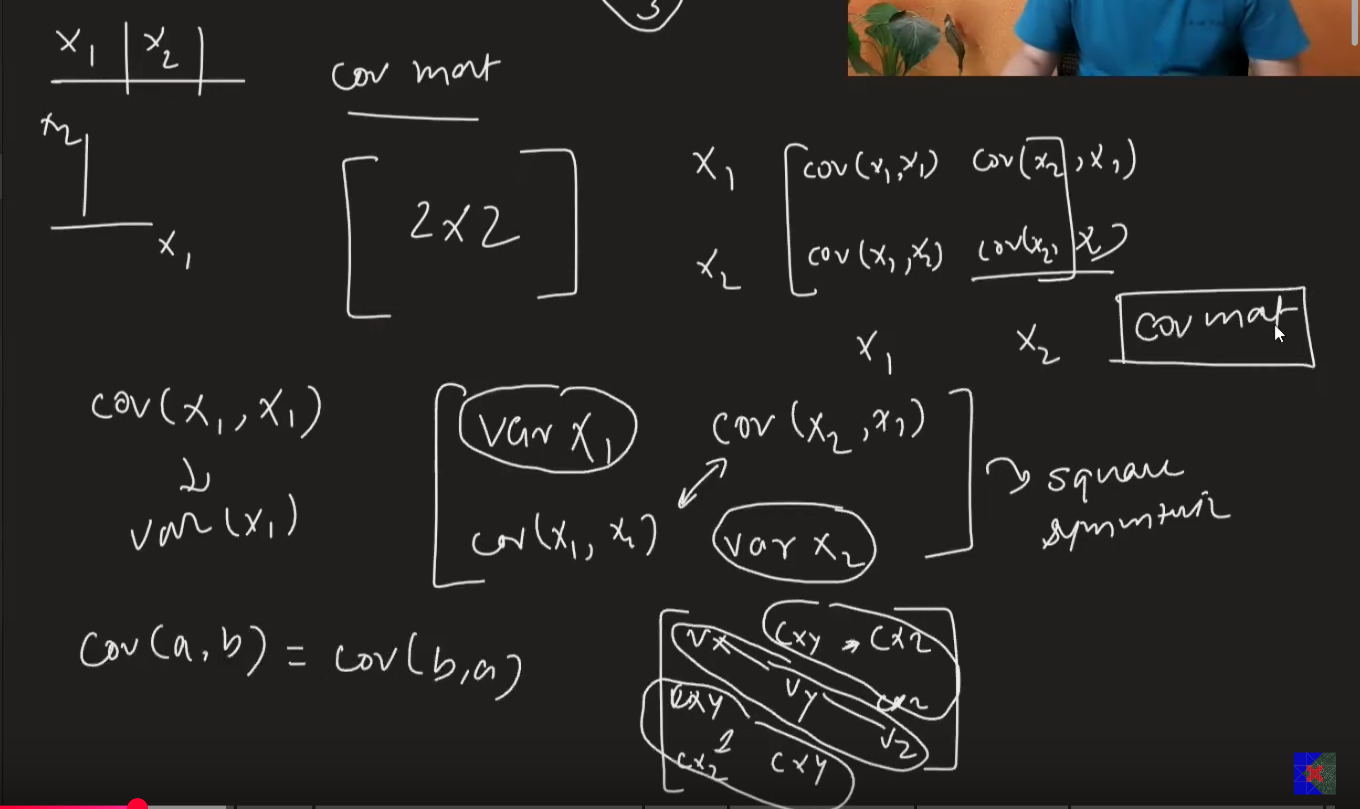 3
x₁ | x₂ |
cov mat
x₂
x₁
[ 2x2 ]
x₁ [ cov(x₁,x₁) cov(x₂,x₁)
x₂ cov(x₁,x₂) cov(x₂,
x₁ x₂
cov mat
cov(x₁,x₁)
var(x₁)
[ var x₁ cov(x₂,x₁) ]
cov(x₁,x₂) var x₂
square
cov(a,b) = cov(b,a)
[ vx cxy cxz ]
cxy vy cxz
cxz cxy vz